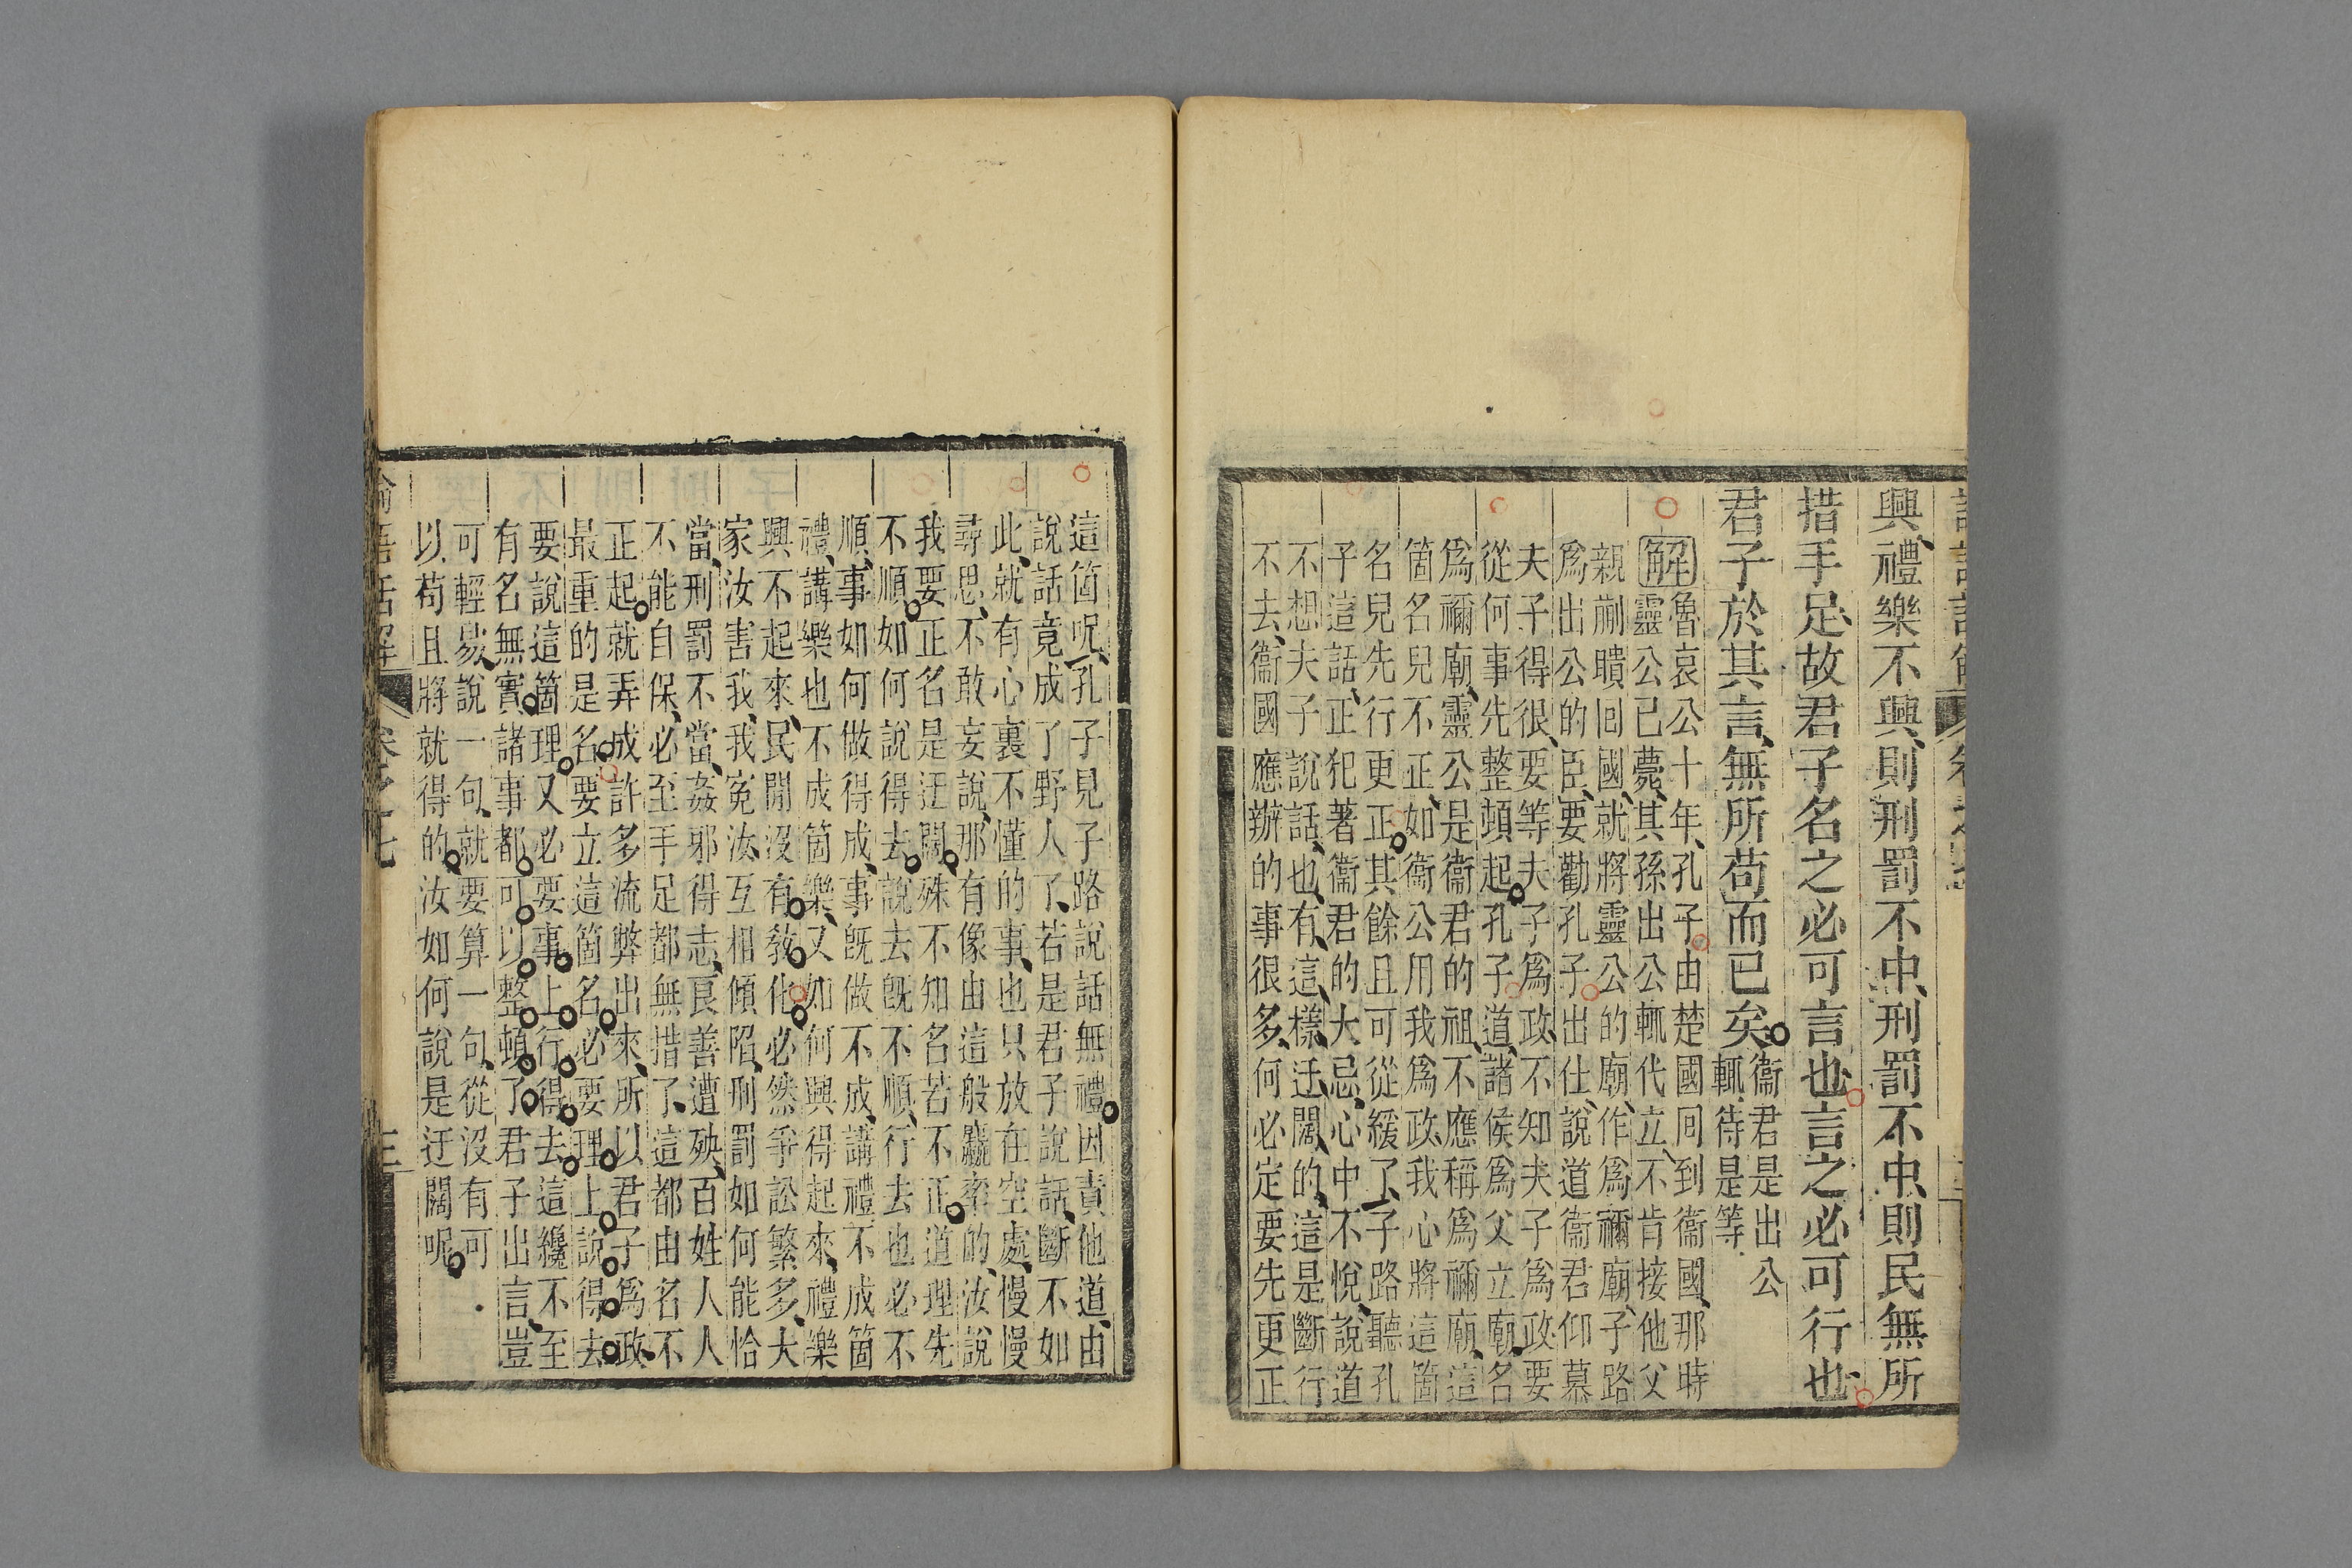 興、禮樂不興、則刑罰不中、刑罰不中、則民無所
措手足、故君子名之必可言也、言之必可行也、
君子於其言、無所苟而已矣、
衞君是出公
輒、待是等
解
魯哀公十年、孔子由楚國囘到衞國、那時
靈公已薨、其孫出公輒代立、不肯接他父
親蒯聵囘國、就將靈公的廟、作爲禰廟、子路
爲出公的臣、要勸孔子出仕、說道衞君仰慕
夫子得很、要等夫子爲政、不知夫子爲政要
從何事先整頓起、孔子道、諸侯爲父立廟、名
爲禰廟、靈公是衞君的祖、不應稱爲禰廟、這
箇名兒不正、如衞公用我爲政、我心將這箇
名兒先行更正、其餘且可從緩了、子路聽孔
子這話、正犯著衞君的大忌、心中不悅、說道
不想夫子說話、也、有、這、樣、迂、闊、的、這是斷行
不去、衞國應辦的事很多、何必定要先更正
這箇呢、孔子見子路說話無禮、因責他道、由
說話竟成了野人了、若是君子說話、斷不如
此、就有心裏不懂的事、也只放在空處、慢慢
尋思、不敢妄說、那有像由這般麤率的、汝說
我要正名是迂闊、殊不知名若不正、道理先
不順、如何說得去、說去旣不順、行去也必不
順、事如何做得成、事旣做不成、講禮不成箇
禮、講樂也不成箇樂、又如何興得起來、禮樂
興不起來、民閒沒有敎化、必然爭訟繁多、大
家汝害我、我寃汝、互相傾陷、刑罰如何能恰
當、刑罰不當、姦邪得志、良善遭殃、百姓人人
不能自保、必至手足都無措了、這都由名不
正起、就弄成許多流弊出來、所以君子爲政、
最重的是名、要立這箇名、必要理上說得去、
要說這箇理、又必要事上行得去、這纔不至
有名無實、諸事都可以整頓了、君子出言、豈
可輕易、說一句、就要算一句、從沒有可
以苟且將就得的、汝如何說是迂闊呢、